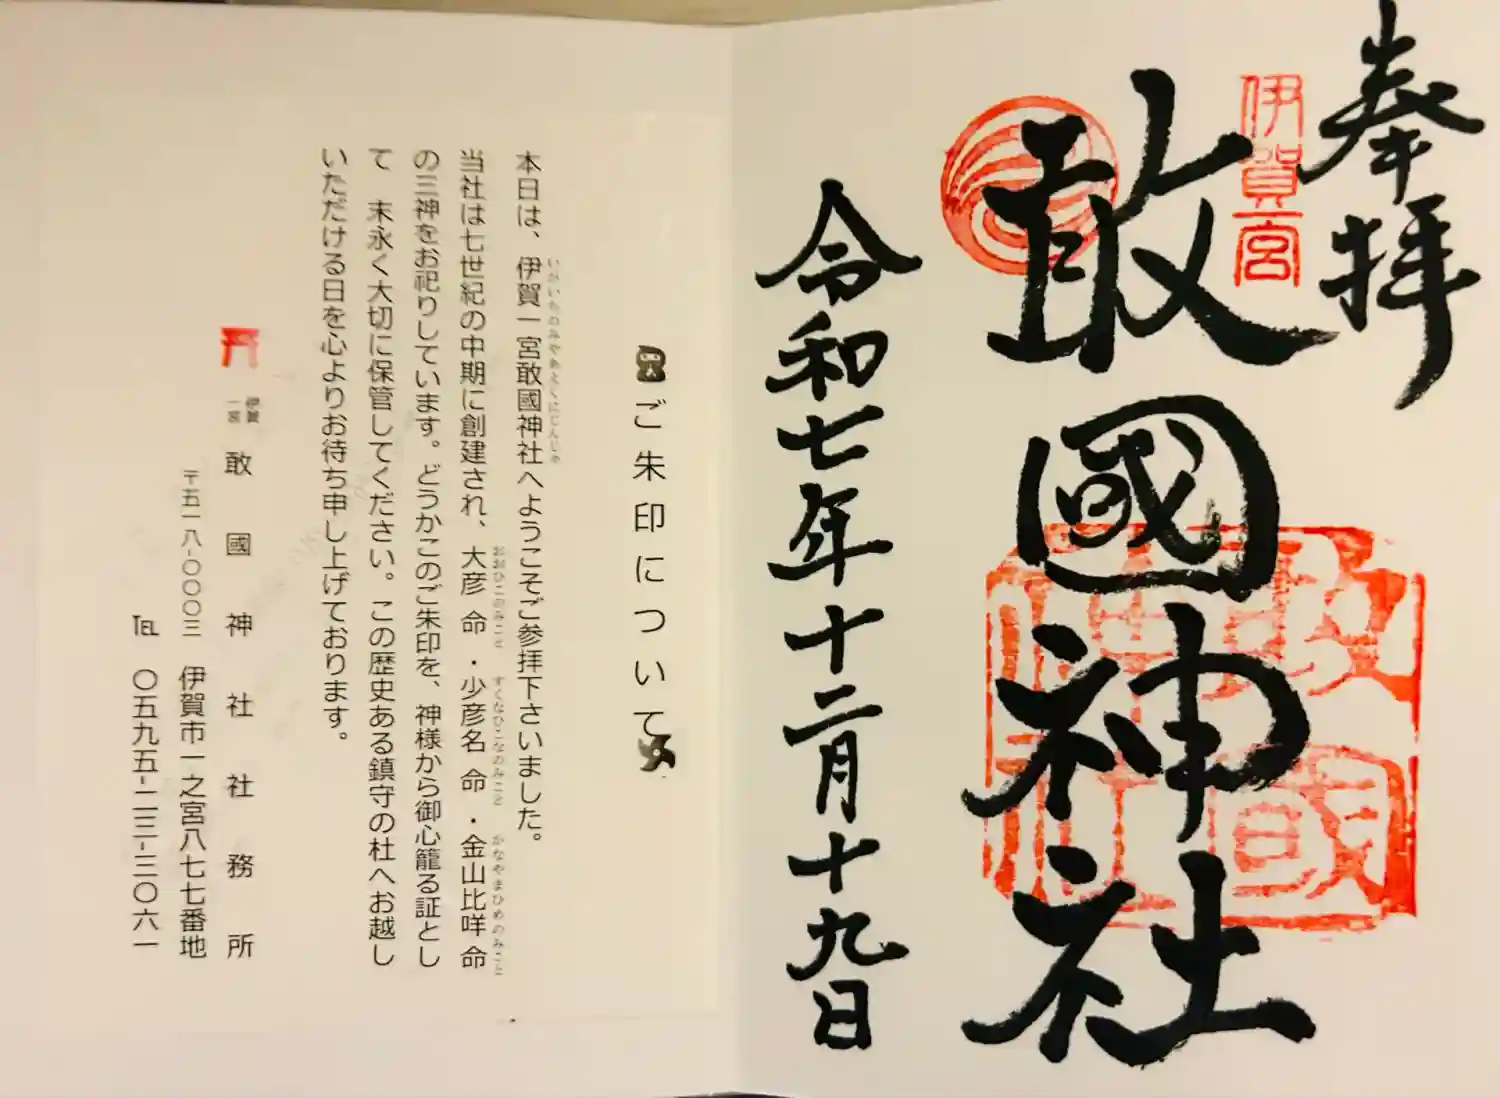 奉拝
伊賀一宮
敢國神社
令和七年十二月十九日
ご朱印について
本日は、伊賀一宮敢國神社へようこそご参拝下さいました。
いがいちのみやあえくにじんじゃ
当社は七世紀の中期に創建され、大彦命・少彦名命・金山比咩命
おおひこのみこと すくなひこなのみこと かなやまひめのみこと
の三神をお祀りしています。どうかこのご朱印を、神様から御心籠る証とし
て 末永く大切に保管してください。この歴史ある鎮守の杜へお越し
いただける日を心よりお待ち申し上げております。
伊賀一宮 敢國神社社務所
〒五一八-〇〇〇三 伊賀市一之宮八七七番地
TEL 〇五九五-二三-三〇六一